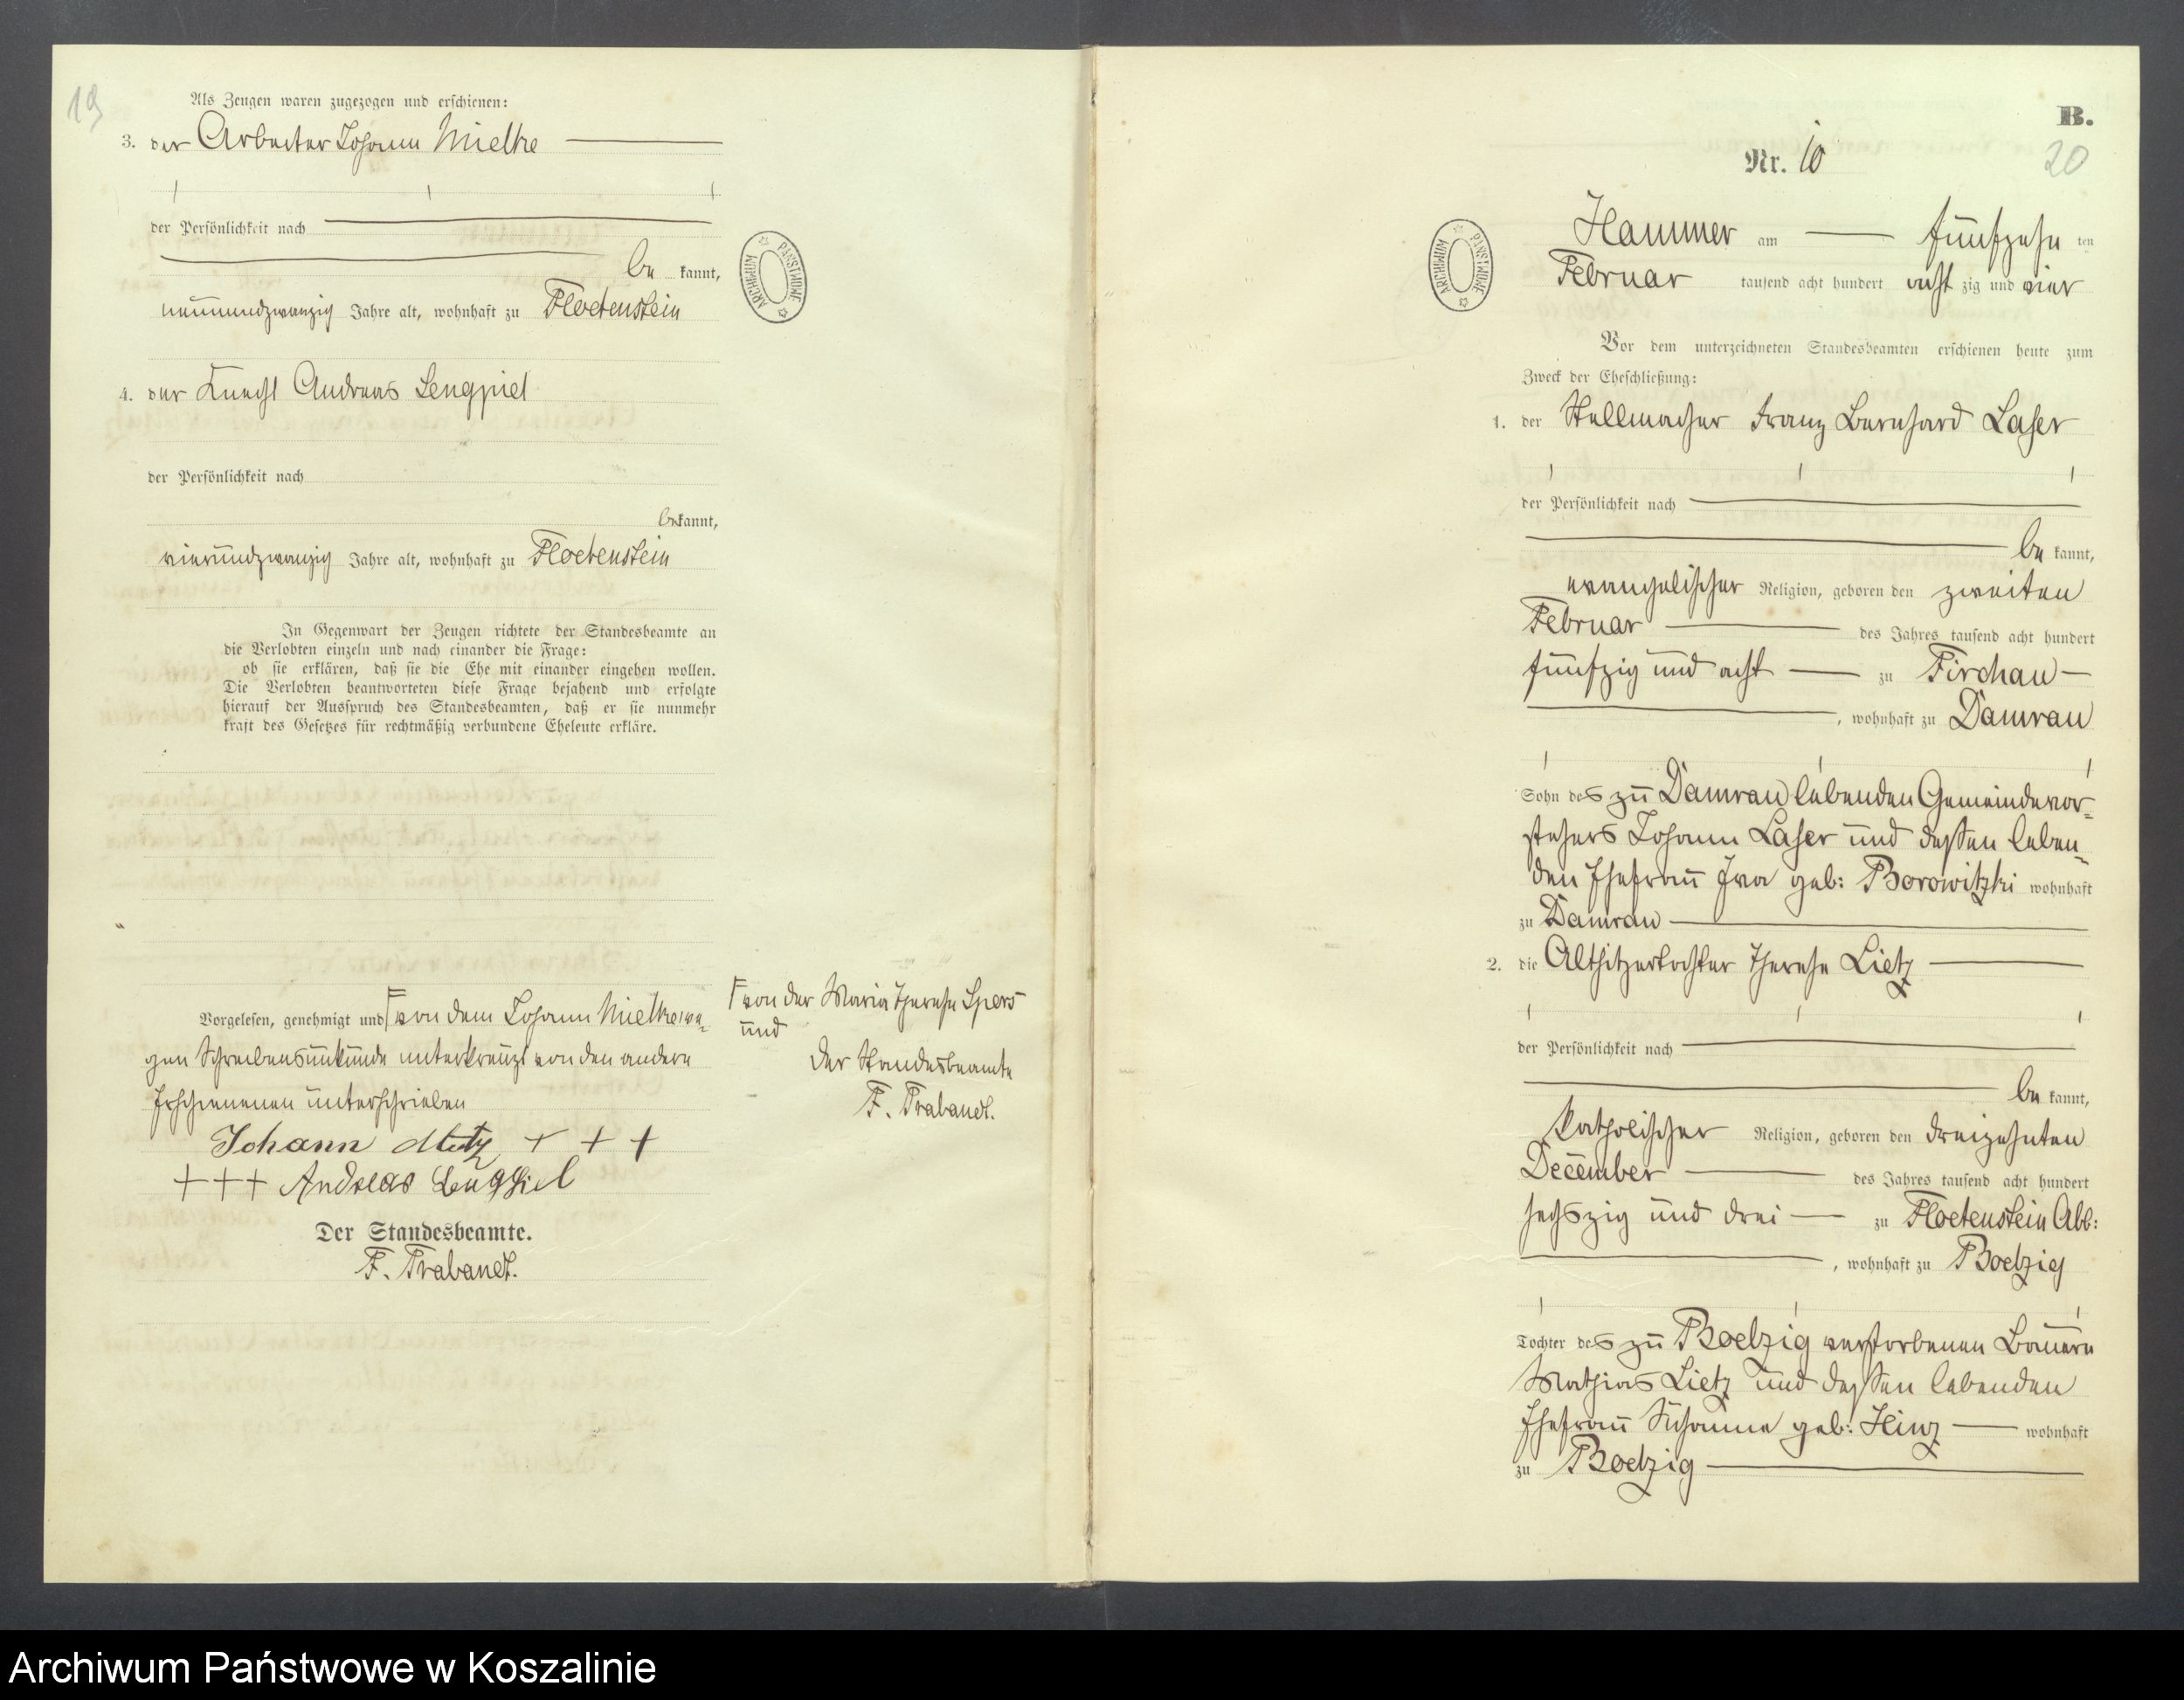 19
Als Zeugen waren zugezogen und erschienen:
3. der Arbeiter Johann Mielke
der Persönlichkeit nach
be kannt,
neunundzwanzig Jahre alt, wohnhaft zu Floetenstein
4. der Knecht Andreas Lengpiel
der Persönlichkeit nach
bekannt,
vierundzwanzig Jahre alt, wohnhaft zu Floetenstein
In Gegenwart der Zeugen richtete der Standesbeamte an
die Verlobten einzeln und nach einander die Frage:
ob sie erklären, daß sie die Ehe mit einander eingehen wollen.
Die Verlobten beantworteten diese Frage bejahend und erfolgte
hierauf der Ausspruch des Standesbeamten, daß er sie nunmehr
kraft des Gesetzes für rechtmäßig verbundene Eheleute erkläre.
Vorgelesen, genehmigt und von dem Johann Mielke we-
gen Schreibensunkunde unterkreuzt von den andern
Erschienenen unterschrieben
Johann + + +
+ + + Andreas
Der Standesbeamte.
F. Trabandt.
von der Maria Therese Spors
und
Der Standesbeamte
F. Trabandt.
ARCHIWUM PAŃSTWOWE
B.
20
Nr. 10
ARCHIWUM PAŃSTWOWE
Hammer am fünfzehn ten
Februar tausend acht hundert acht zig und vier
Vor dem unterzeichneten Standesbeamten erschienen heute zum
Zweck der Eheschließung:
1. der Stellmacher Franz Bernhard Laser
der Persönlichkeit nach
be kannt,
evangelischer Religion, geboren den zweiten
Februar des Jahres tausend acht hundert
fünfzig und acht zu Firchau
, wohnhaft zu Damrau
Sohn des zu Damrau lebenden Gemeindevor-
stehers Johann Laser und dessen leben-
den Ehefrau Eva geb: Borowitzki wohnhaft
zu Damrau
2. die Altsitzertochter Therese Lietz
der Persönlichkeit nach
be kannt,
katholischer Religion, geboren den dreizehnten
December des Jahres tausend acht hundert
sechszig und drei zu Floetenstein Abb:
, wohnhaft zu Boelzig
Tochter des zu Boelzig verstorbenen Bauern
Mathias Lietz und dessen lebenden
Ehefrau Susanna geb: Hinz wohnhaft
zu Boelzig
Archiwum Państwowe w Koszalinie